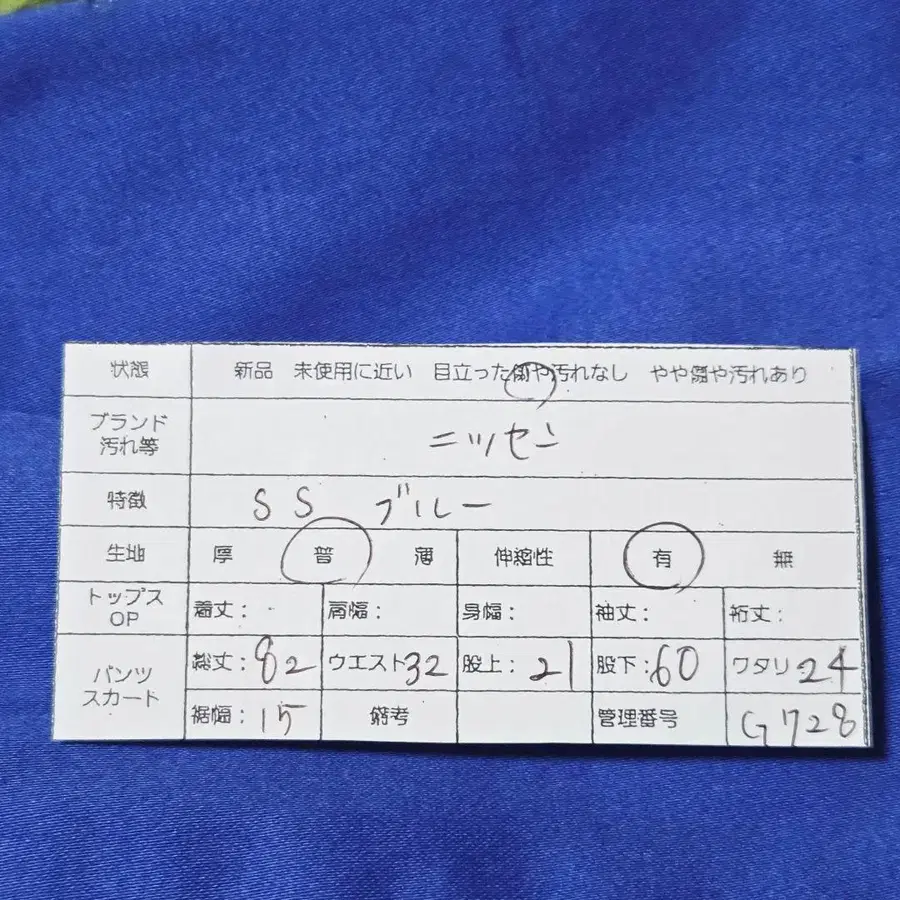 状態 新品 未使用に近い 目立った傷や汚れなし やや傷や汚れあり
ブランド
汚れ等 ニッセン
特徴 SS ブルー
生地 厚 普 薄 伸縮性 有 無
トップス
OP 着丈: 肩幅: 身幅: 袖丈: 裄丈:
パンツ
スカート 総丈:82 ウエスト32 股上:21 股下:60 ワタリ:24
裾幅:15 備考 管理番号 G728